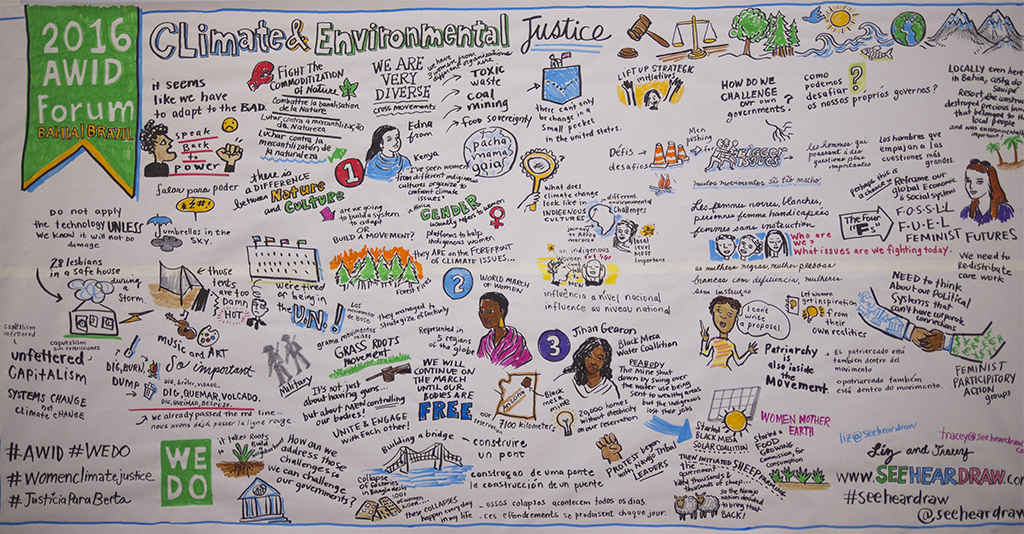 2016
AWID
Forum
BAHIA|BRAZIL
CLimate & Environmental Justice
it seems
like we have
to adapt to the BAD.
speak
Back
to
power
falar para poder
FIGHT THE
COMMODITIZATION
of Nature
Combattre la banalisation
de la Nature
Luchar contra la
mercantilización de
la naturaleza
there is
a DIFFERENCE
between Nature
and CULTURE
WE ARE
VERY
DIVERSE
cross movements
TOXIC
waste
coal
mining
Food sovereignty
Edna
from
Kenya
1
"I've seen women
from different indigenous
cultures organize to
confront climate
issues"
pacha
mama
gaia!
there can't only
be change in a
small pocket
in the united states.
LIFT UP STRATEGIC
initiatives
HOW DO WE
CHALLENGE
our own
governments?
como
podemos
desafiar
os nossos próprios governos?
?
LOCALLY even here
in Bahia, costa do
Sauipe
Resort, the construction
destroyed precious land
that belonged to the
local people
and was environmentally
important
Défis
desafíos
Men
pushing
bigger
issues
les hommes que
poussent à des
questions plus
importantes
los hombres que
empujan a las
cuestiones más
grandes.
muitos movimentos são tão macho.
perhaps this is
a chance to
Reframe our
global Economic
& social system
The Four
"F's"
F-O-S-S-I-L
F-U-E-L
FEMINIST FUTURES
What does
climate change
look like in
INDIGENOUS
CULTURES
different
environmental
challenges
local
level
most
important
an indigenous
Women
influência a nível nacional
influence au niveau national
Les femmes noires, blanches,
personnes femmes handicapées
femmes sans instruction
who are
we?
What issues are we fighting today.
as mulheres negras, mulher pessoas
brancas com deficiência, mulheres
sem instrução
are we going
to build a system
to adapt
OR
BUILD A MOVEMENT?
Forest Fires
GENDER
usually refers to women
platforms to help
indigenous women
they ARE on the FOREFRONT
OF CLIMATE ISSUES...
Do not apply
the technology UNLESS
we know it will not do
damage
umbrellas in the
SKY.
28 lesbians
in a safe house
during
storm
those
tents
are too
Damn
HOT
we're tired
of being in
the U.N.!
2
WORLD MARCH
OF WOMEN
Represented in
5 regions
of the globe
they managed to
strategize effectively
GRASS ROOTS
MOVEMENT
3
Jihan Gearon
Black Mesa
Water Coalition
PEABODY
The mine shut
down by suing over
the water use being
sent to wealthy areas
but the indigenous
lost their jobs
I can't
write
a proposal
Let women
get inspiration
from their
own realities
Patriarchy
is also
inside the
Movement.
EL patriarcado está
también dentro del
movimiento.
o patriarcado também
dentro do movimento.
NEED TO think
About our political
Systems that
Can't have corporate
connections
We need to
redistribute
care work
FEMINIST
PARTICIPATORY
ACTION
groups
capitalism
unfettered
capitalismo
sin restricciones
unfettered
CAPITALISM
SYSTEMS CHANGE
not
climate change
DIG, BURN,
DUMP
MUSIC and ART
So important
DIG, QUEMAR, VOLCADO.
we already passed the red line...
nous avons déjà passer la ligne rouge.
Military
It's not just
about having guns...
but about MEN controlling
our bodies!
UNITE & ENGAGE
with Each other!
WE WILL
CONTINUE ON
THE MARCH
UNTIL OUR
BODIES ARE
FREE
Arizona
our
reservation
7100 kilometers
Black
mesa
mine
20,000 homes
without electricity
on our reservation!
Started a
BLACK MESA
SOLAR COALITION
WOMEN MOTHER
EARTH
Started a
FOOD
GROWING
COMMISSION
for Community
#AWID #WEDO
#Womenclimatejustice
#JusticiaParaBerta
WE
DO
it takes Roots
to build
change
How can we
address those
challenges so
we can challenge
our governments?
Building a bridge — construire
un pont
construção de uma ponte
la construcción de un puente
collapse
of factories
in Bangladesh
these COLLAPSES
happen every day
in my life
- essas colapsos acontecem todos os dias.
- ces effondrements se produisent chaque jour.
PROTEST by
Navajo Tribal
LEADERS
Then initiated SHEEP
so the Navajo
nation decided
to bring that
BACK!
liz@seeheardraw
tracey@seeheardraw
Liz and Tracey
www.SEEHEARDRAW.com
#seeheardraw
@seeheardraw